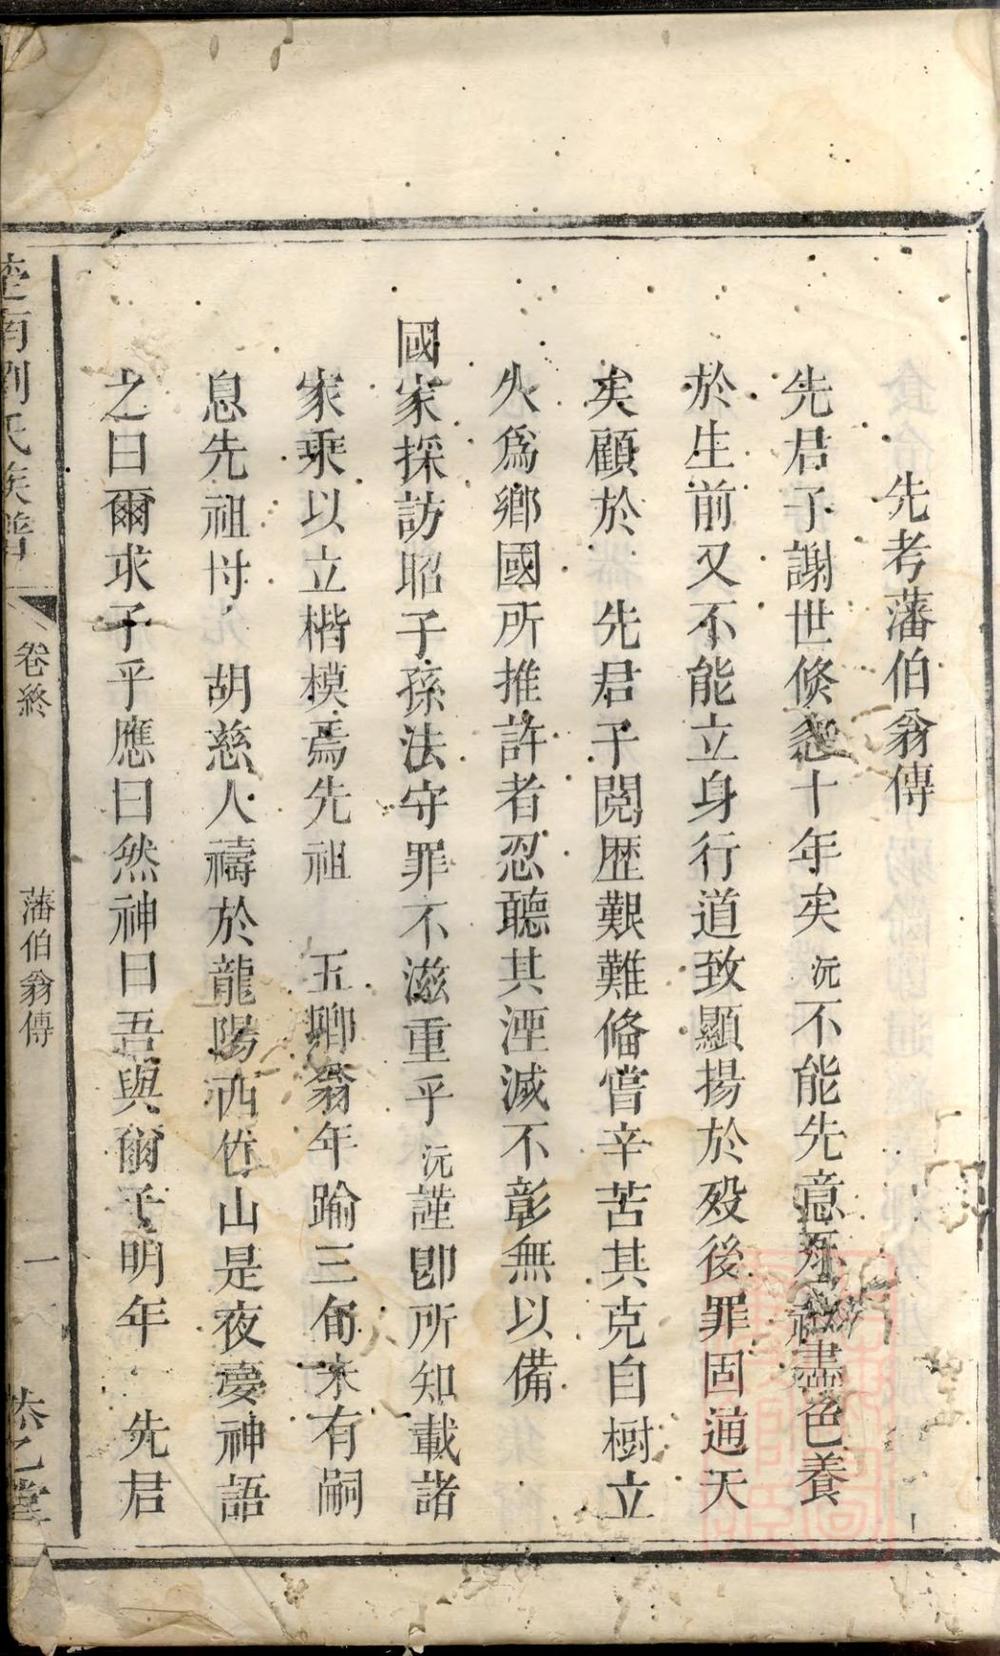 先考藩伯翁傳
先君子謝世倏愆十年矣沅不能先意承盡色養
於生前又不能立身行道致顯揚於歿後罪固通天
矣顧於 先君子閱歷艱難俻嘗辛苦其克自樹立
久爲鄉國所推許者忍聽其湮滅不彰無以備
國家採訪昭子孫法守罪不滋重乎沅謹卽所知載諸
家乘以立楷模焉先祖 玉卿翁年踰三旬未有嗣
息先祖妣 胡慈人禱於龍陽西竺山是夜夢神語
之曰爾求子乎應曰然神曰吾與爾子明年 先君
南劉氏族譜 卷終 藩伯翁傳 一 乙堂